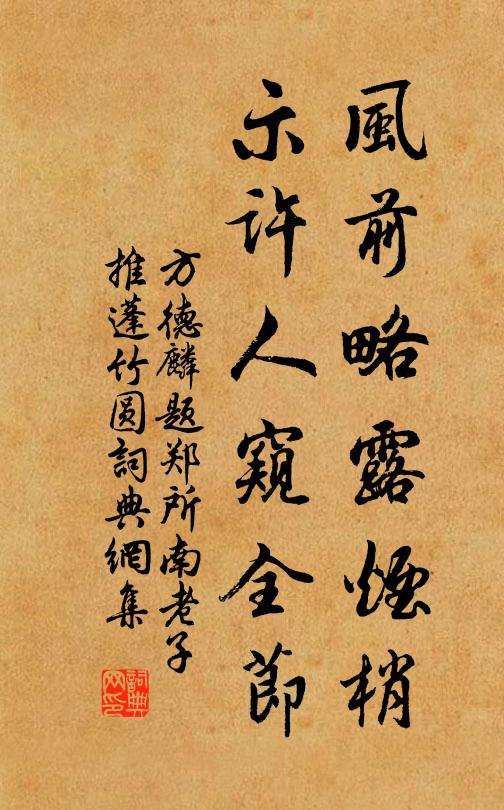 風前略露煙梢
示許人窺全節
方德麟題郑所南老子
推蓬竹圓詞典網集
詞典网印